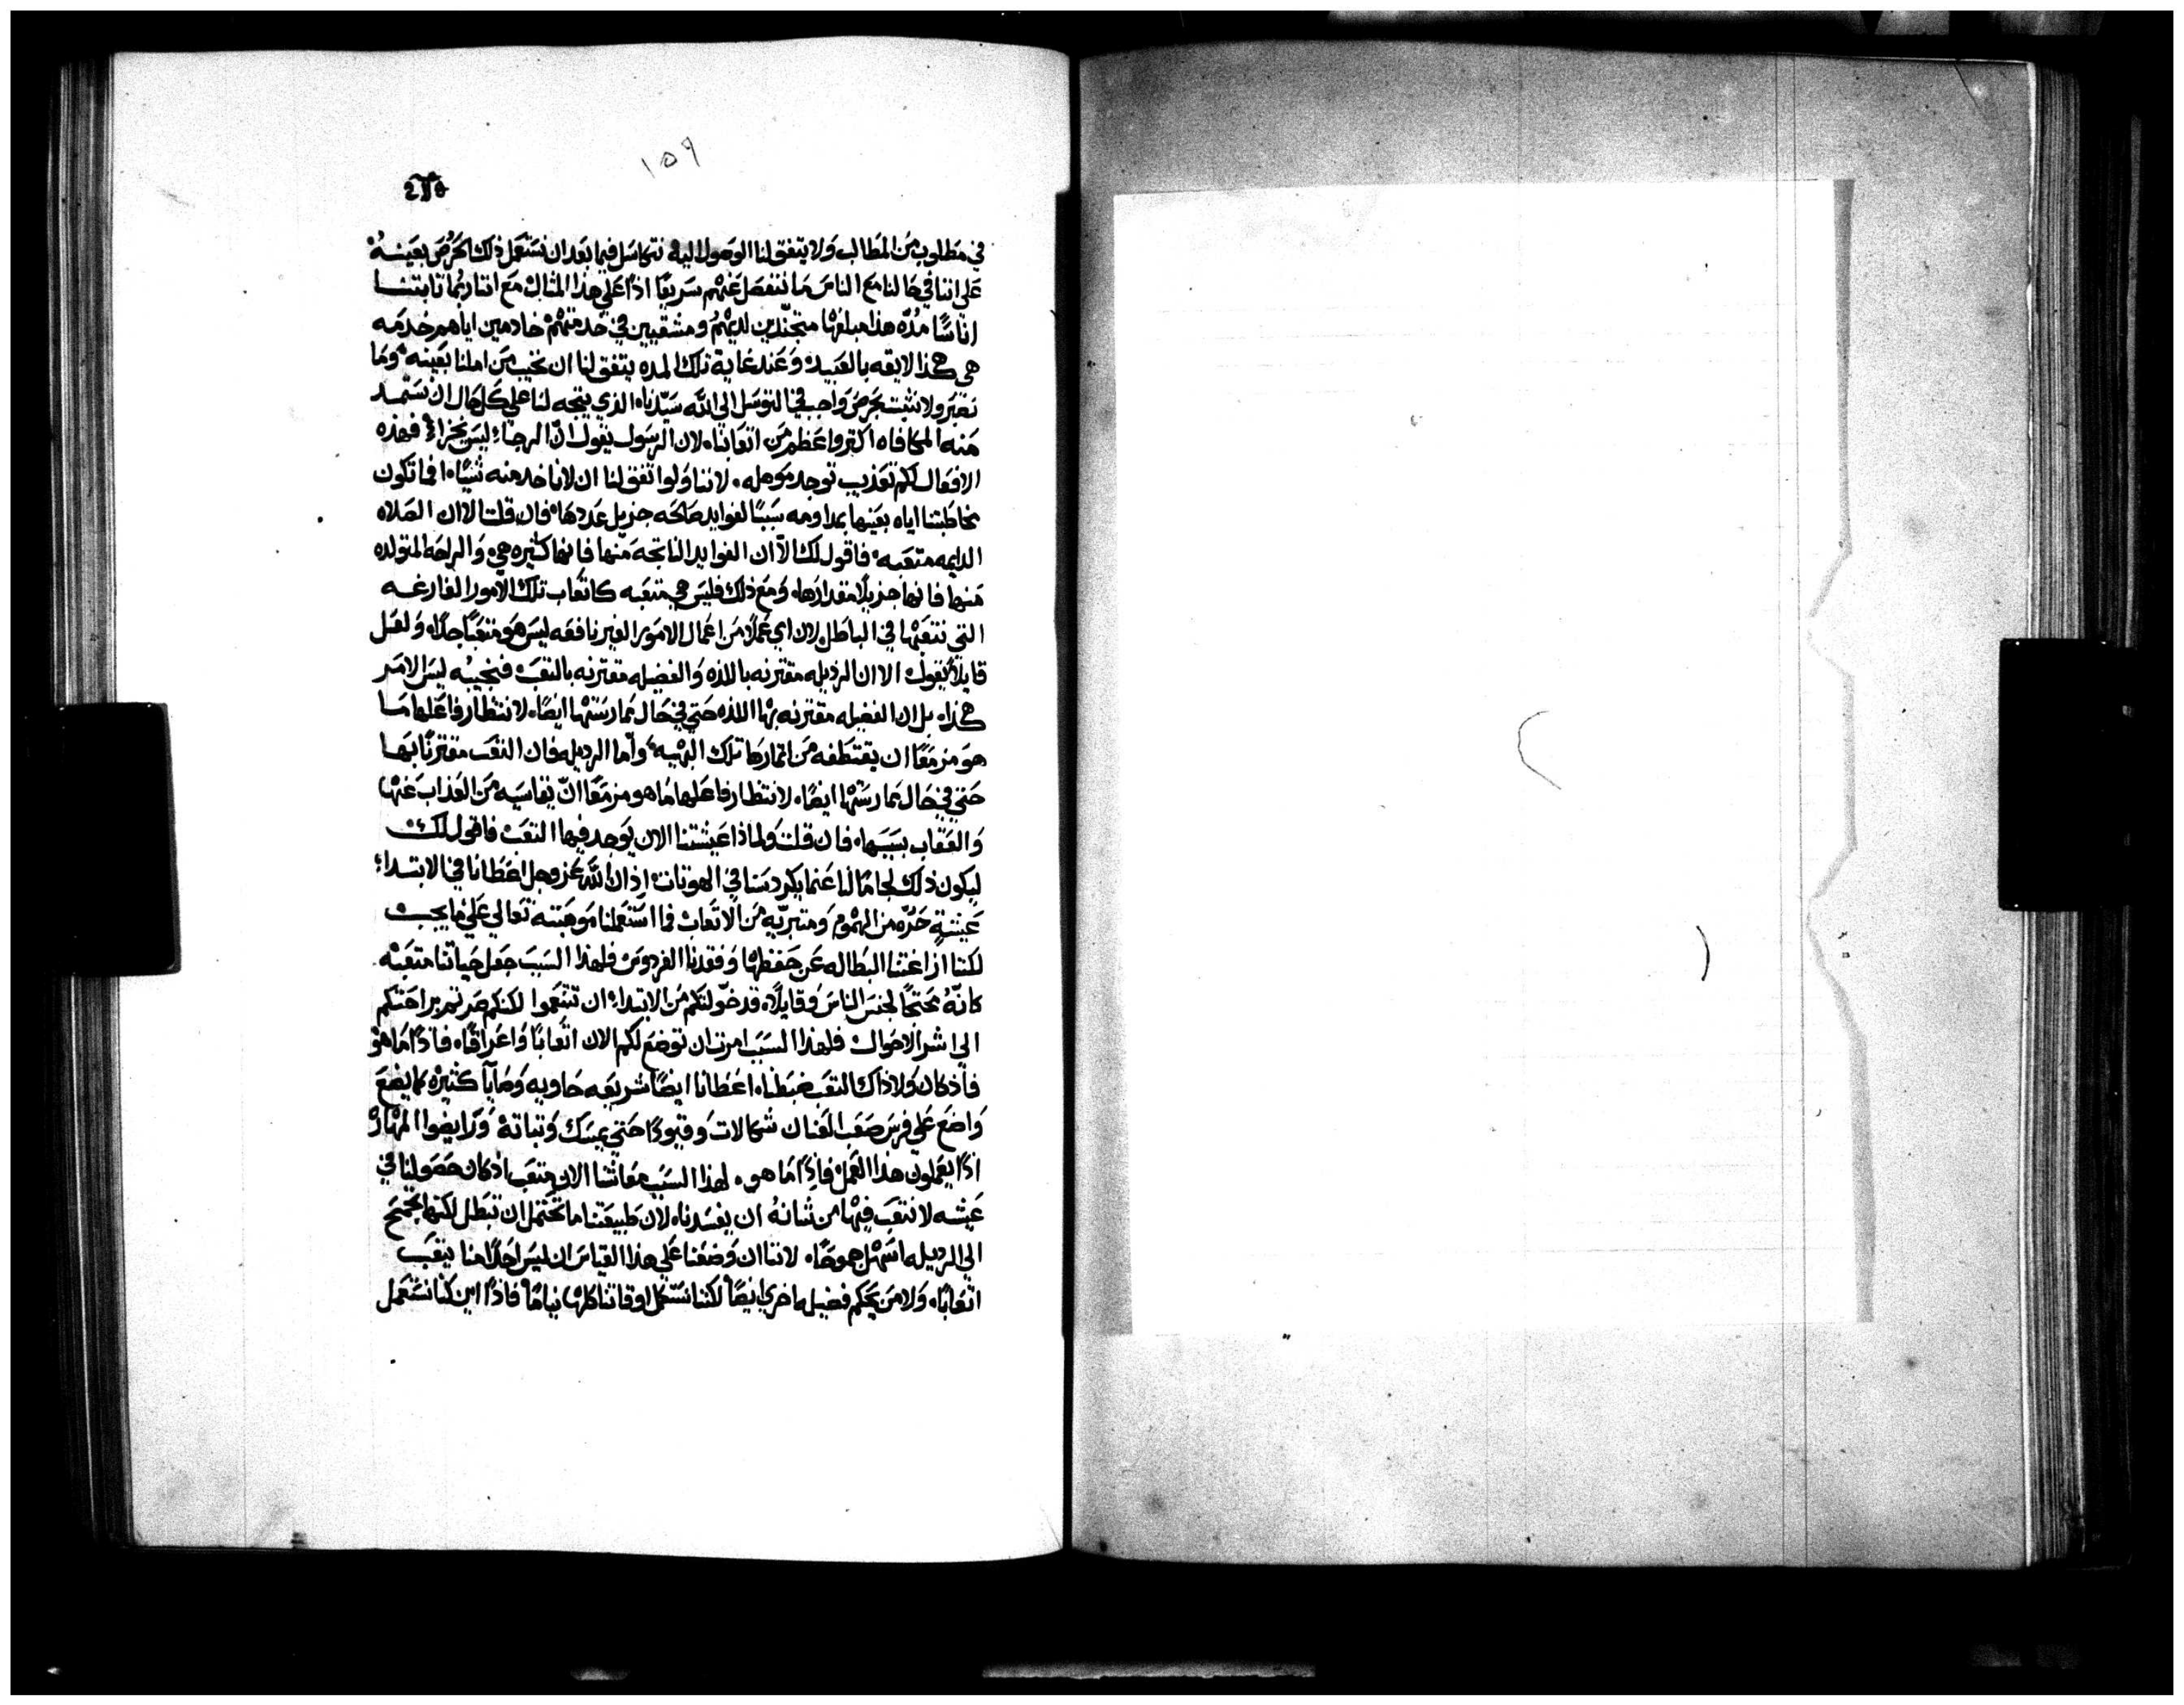 ١٥٩
في مطلوب من المطالب ولا يتفق لنا الوصول اليه نتكاسل فيما بعد ان نستعمل ذلك الحرص بعينه
علي اننا في حالنا مع الناس ما ننفصل عنهم سريعًا اذًا علي هذا المثال مع اننا ربما ثابتنا
اناسًا مُدّه هذا مبلغها متجنّدين لديهم ومشقيين في خدمتهم خادمين اياهم خدمه
هي هكذا لايقه بالعبيد وعند غاية تلك المده يتفق لنا ان نخيب من املنا بعينه وما
نصبر ولا نثبت بحرص واجب في التوسل الي اللّه سيّدنا الذي يتجه لنا علي كل حال ان نستمد
منه المكافاه اكثر واعظم من اتعابنا لان الرسول يقول انّ الرجاء ليس يخزا فهذه
الافعال لكم تعذيب توجد موهله لاننا ولو اتفق لنا ان لا ناخذ منه شيًا افما تكون
مخاطبتنا اياه بعينها بمداومه سببًا لفوايد صالحه جزيل عددها فان قلت الا ان الصلاه
الدايمه متعبه فاقول لك الآ ان الفوايد الناتجه منها فانها كثيره هي والراحه المتولده
منها فانها جزيلًا مقدارها ومع ذلك فليس هي متعبه كاتعاب تلك الامور الفارغه
التي نتعبها في الباطل لان اي عملًا من اعمال الامور الغير نافعه ليس هو متعبًا جدًا ولعل
قايلًا يقول الا ان الرذيله مقترنه بالذه والفضيله مقترنه بالتعب فنجيبه ليس الامر
هكذا بل ان الفضيله مقترنه بها اللذه حتي في حال ممارستها ايضًا لانتظار فاعلها ما
هو مزمعًا ان يقتطفه من اثمارها تلك البهيه واما الرديله فان التعب مقترنًا بها
حتي في حال ممارستها ايضًا لانتظار فاعلها ما هو مزمعًا انّ يقاسيه من العذاب عنها
والعقاب بسببها فان قلت ولماذا عيشتنا الان يوجد فيها التعب فاقول لك
ليكون ذلك لجامًا لنا عنما يكردسنا في الهوتات اذ ان اللّه عز وجل اعطانا في الابتداء
عيشةٍ حرّه من الهموم ومتبريّه من الاتعاب فما استعملنا موهبته تعالي علي ما يجب
لكننا ازاغتنا البطاله عن حفظها وفقدنا الفردوس فلهذا السبب جعل حياتنا متعبه
كانّهُ محتجًا لجنس الناس وقايلًا قد خوّلتكم من الابتداء ان تتنعموا لكنكم صرتم براحتكم
الي اشر الاحوال فلهذا السبب امرت ان توضع لكم الان اتعابًا واعراقًا فاذًا ما هو
فاذ كان ولا ذاك التعب ضبطنا اعطانا ايضًا شريعه حاويه وصايا كثيره كما يضع
واضع علي فرس صعب العنان شكالات وقيودًا حتي يمسك وثباته ورايضوا المهار
اذًا يعملون هذا العمل فاذًا ما هو لهذا السبب معاشنا الان متعب اذ كان حصولنا في
عيشه لا نتعب فيها من شانهُ ان يفسدنا لان طبيعتنا ما تحتمل ان تبطل لكنها تجمح
الي الرديله اسهل جموحًا لاننا ان وضعنا علي هذا القياس ان ليس احدًا منا يتعب
اتعابًا ولا من يحكم فضيله اخري ايضًا لكننا نستعمل اوقاتنا كلها نيامًا فاذًا اين كنا نستعمل